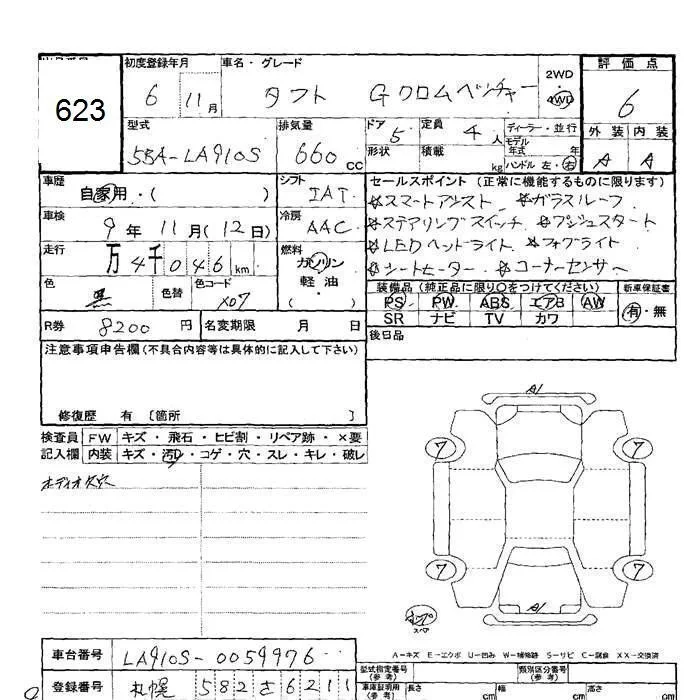 623
初度登録年月 車名・グレード 評価点
6 11月 タフト Gクロムベンチャー 2WD 4WD 6
型式 排気量 ドア 5 定員 4人 ディーラー・並行 外装 内装
5BA-LA910S 660cc 形状 積載 kg モデル年式 年 ハンドル 左・右 A A
車歴 自家用・( ) シフト IAT セールスポイント (正常に機能するものに限ります)
☆スマートアシスト ☆ガラスルーフ
車検 9年 11月(12日) 冷房 AAC ☆ステアリングスイッチ ☆プッシュスタート
走行 万4千046km 燃料 ガソリン 軽油 ( ・ ) ☆LEDヘッドライト ☆フォグライト
☆シートヒーター ☆コーナーセンサー
色 黒 色替 色コード X07 装備品 (純正品に限り○をつけてください) 新車保証書
PS PW ABS エアB AW 有・無
R券 8200円 名変期限 月 日 SR ナビ TV カワ
後日品
注意事項申告欄(不具合内容等は具体的に記入して下さい)
修復歴 有 〔箇所 〕
検査員 FW キズ・飛石・ヒビ割・リペア跡・×要
記入欄 内装 キズ・汚れ・コゲ・穴・スレ・キレ・破レ
オーディオ欠穴
A1
7 7
7 7
A1
スペア
A-キズ E-エクボ U-凹み W-補修跡 S-サビ C-腐食 XX-交換済
車台番号 LA910S-0059976
型式指定番号 (参考) 類別区分番号 (参考)
登録番号 札幌 582 さ 6211
車庫証明用 (参考) 長さ cm 幅 cm 高さ cm